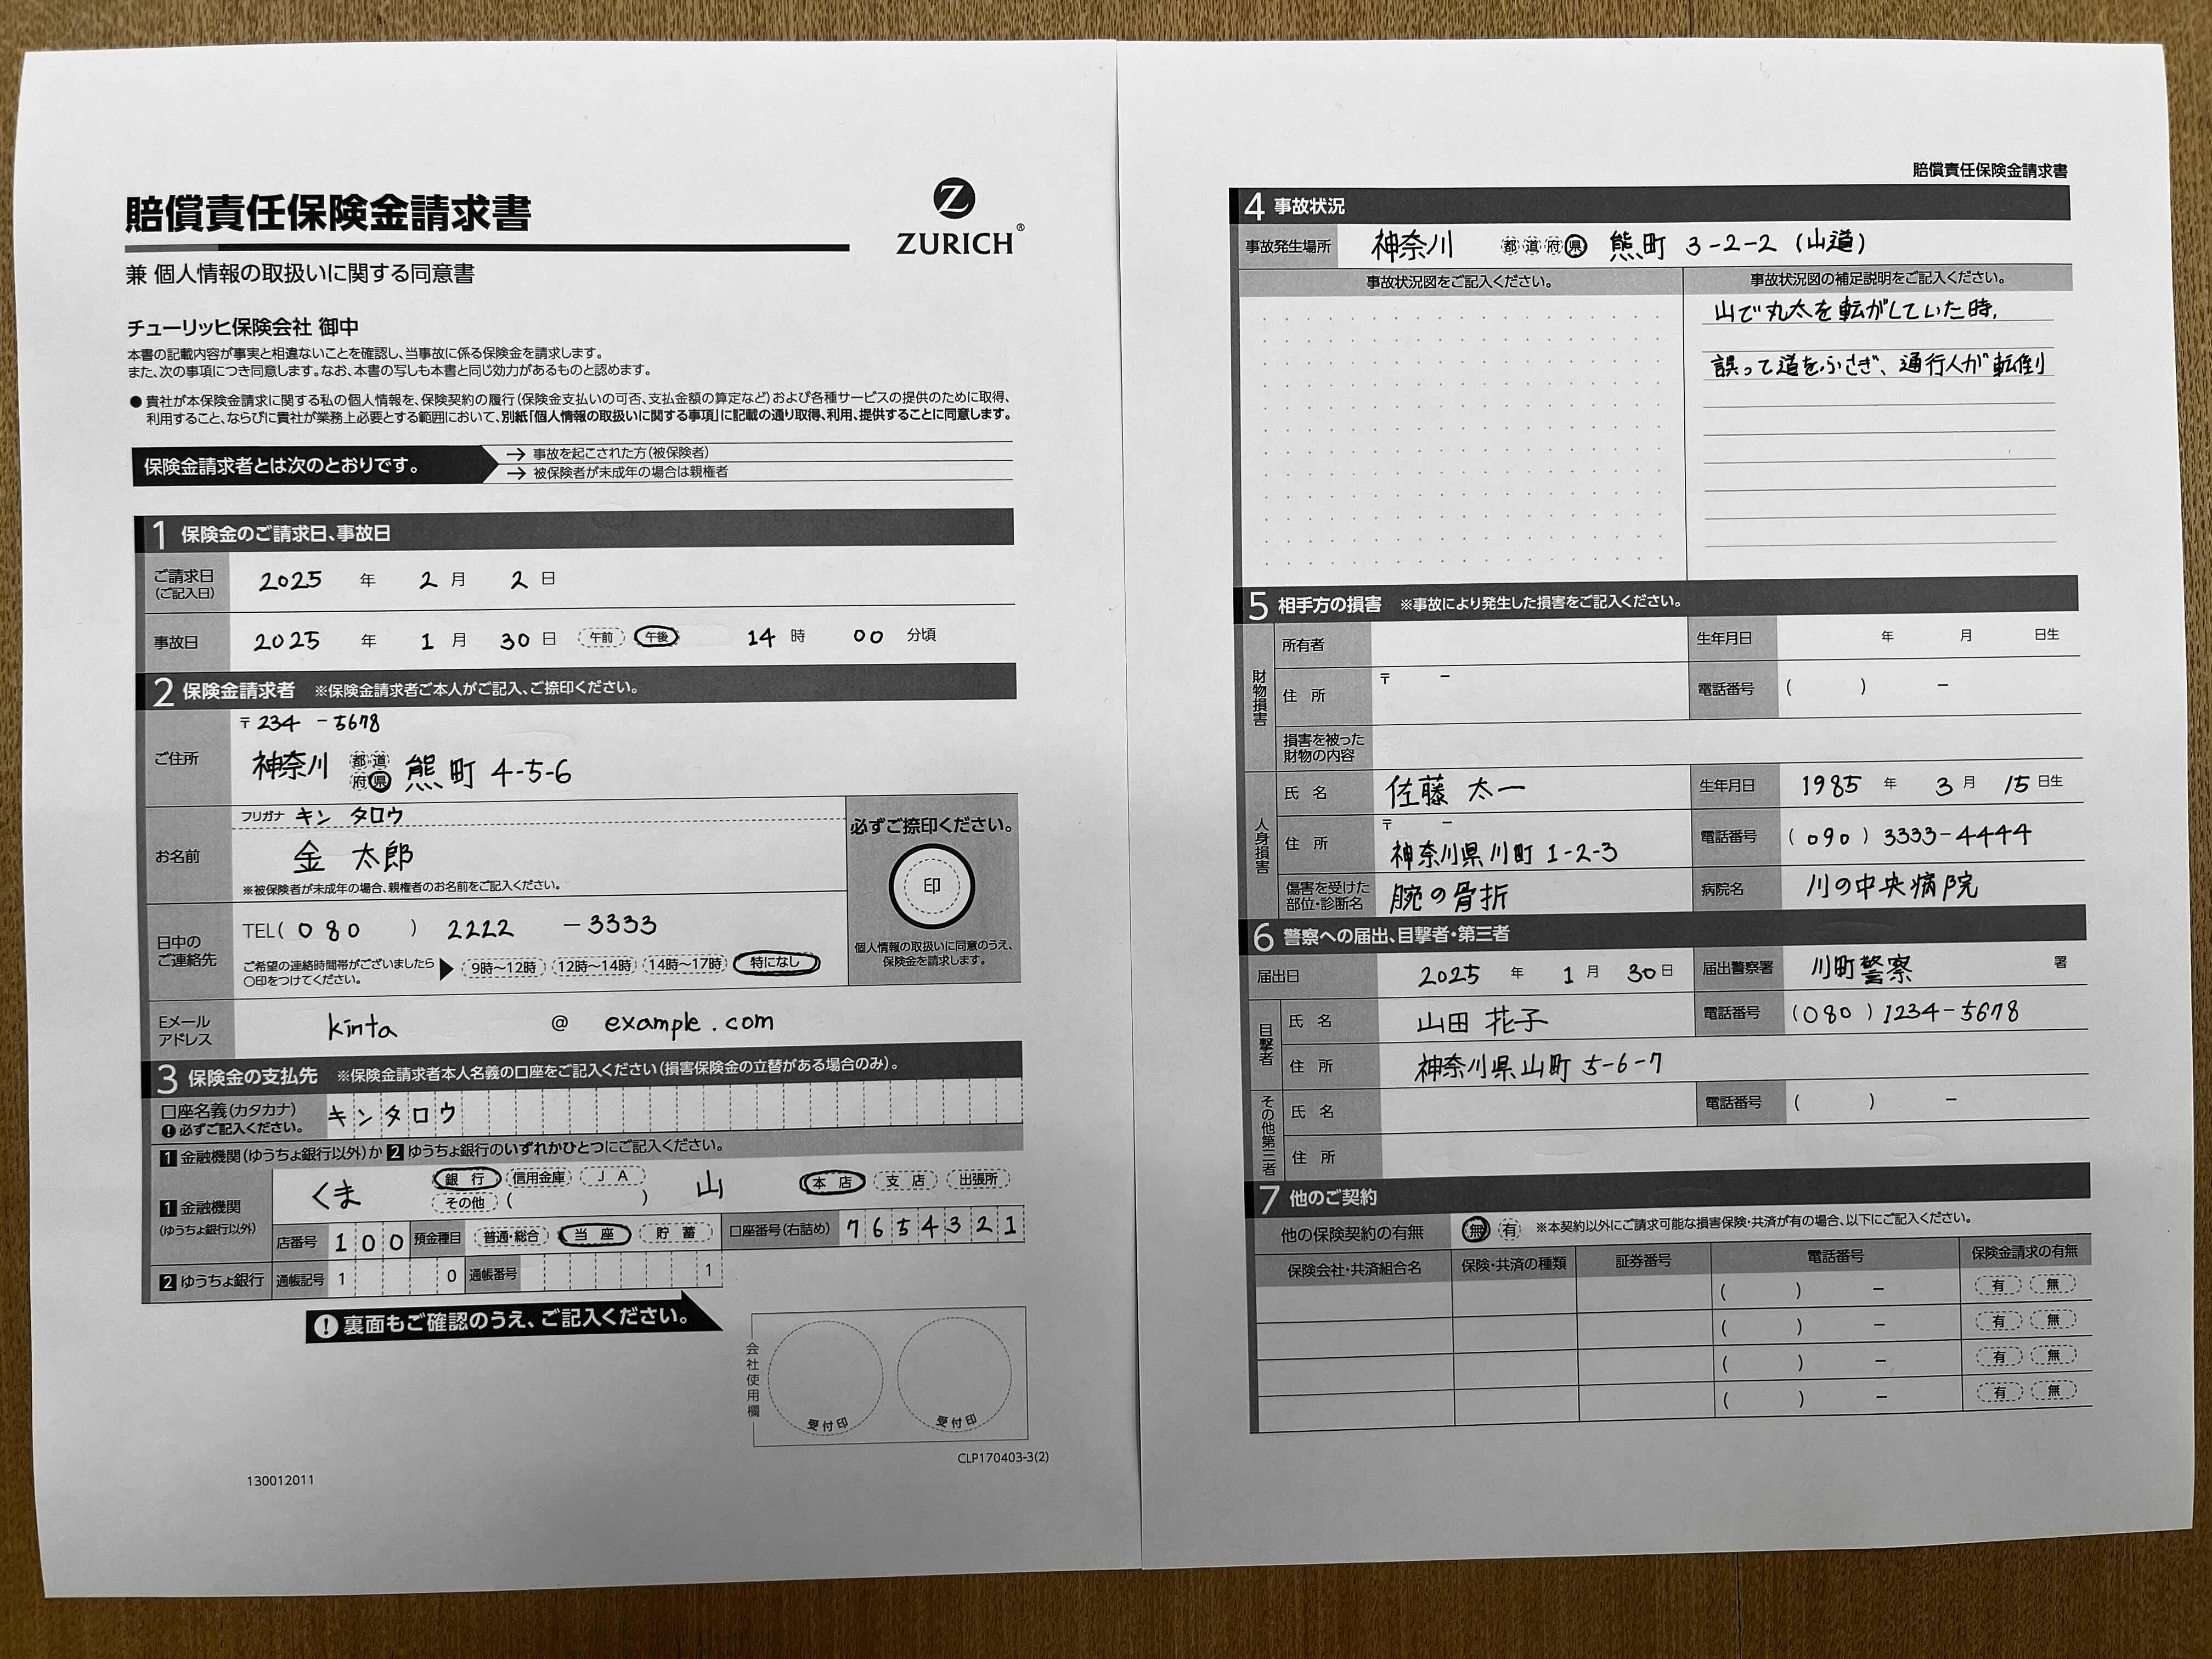 賠償責任保険金請求書
Z
ZURICH®
兼 個人情報の取扱いに関する同意書
チューリッヒ保険会社 御中
本書の記載内容が事実と相違ないことを確認し、当事故に係る保険金を請求します。
また、次の事項につき同意します。なお、本書の写しも本書と同じ効力があるものと認めます。
● 貴社が本保険金請求に関する私の個人情報を、保険契約の履行(保険金支払いの可否、支払金額の算定など)および各種サービスの提供のために取得、
利用すること、ならびに貴社が業務上必要とする範囲において、別紙「個人情報の取扱いに関する事項」に記載の通り取得、利用、提供することに同意します。
保険金請求者とは次のとおりです。
→ 事故を起こされた方(被保険者)
→ 被保険者が未成年の場合は親権者
1 保険金のご請求日、事故日
ご請求日 2025 年 2 月 2 日
(ご記入日)
事故日 2025 年 1 月 30 日 午前 午後 14 時 00 分頃
2 保険金請求者 ※保険金請求者ご本人がご記入、ご捺印ください。
〒 234 - 5678
ご住所 神奈川 都 道 府 県 熊町 4-5-6
フリガナ キン タロウ
お名前 金 太郎
※被保険者が未成年の場合、親権者のお名前をご記入ください。
必ずご捺印ください。
印
個人情報の取扱いに同意のうえ、
保険金を請求します。
日中の
ご連絡先
TEL( 080 ) 2222 - 3333
ご希望の連絡時間帯がございましたら
○印をつけてください。
9時〜12時 12時〜14時 14時〜17時 特になし
Eメール
アドレス
kinta @ example.com
3 保険金の支払先 ※保険金請求者本人名義の口座をご記入ください(損害保険金の立替がある場合のみ)。
口座名義(カタカナ) キンタロウ
! 必ずご記入ください。
1 金融機関(ゆうちょ銀行以外)か 2 ゆうちょ銀行のいずれかひとつにご記入ください。
1 金融機関
(ゆうちょ銀行以外)
くま 銀行 信用金庫 JA 山 本店 支店 出張所
その他 ( )
店番号 100 預金種目 普通・総合 当座 貯蓄 口座番号(右詰め) 7654321
2 ゆうちょ銀行 通帳記号 1 0 通帳番号 1
! 裏面もご確認のうえ、ご記入ください。
会社使用欄
受付印 受付印
CLP170403-3(2)
130012011
賠償責任保険金請求書
4 事故状況
事故発生場所 神奈川 都 道 府 県 熊町 3-2-2 (山道)
事故状況図をご記入ください。
事故状況図の補足説明をご記入ください。
山で丸太を転がしていた時、
誤って道をふさぎ、通行人が転倒
5 相手方の損害 ※事故により発生した損害をご記入ください。
財物損害
所有者 生年月日 年 月 日生
住 所 〒 - 電話番号 ( ) -
損害を被った
財物の内容
人身損害
氏 名 佐藤 太一 生年月日 1985 年 3 月 15 日生
住 所 〒 - 電話番号 (090) 3333-4444
神奈川県川町 1-2-3
傷害を受けた
部位・診断名
腕の骨折 病院名 川の中央病院
6 警察への届出、目撃者・第三者
届出日 2025 年 1 月 30 日 届出警察署 川町警察 署
目撃者
氏 名 山田 花子 電話番号 (080) 1234-5678
住 所 神奈川県山町 5-6-7
その他第三者
氏 名 電話番号 ( ) -
住 所
7 他のご契約
他の保険契約の有無 無 有 ※本契約以外にご請求可能な損害保険・共済が有の場合、以下にご記入ください。
保険会社・共済組合名 保険・共済の種類 証券番号 電話番号 保険金請求の有無
( ) - 有 無
( ) - 有 無
( ) - 有 無
( ) - 有 無